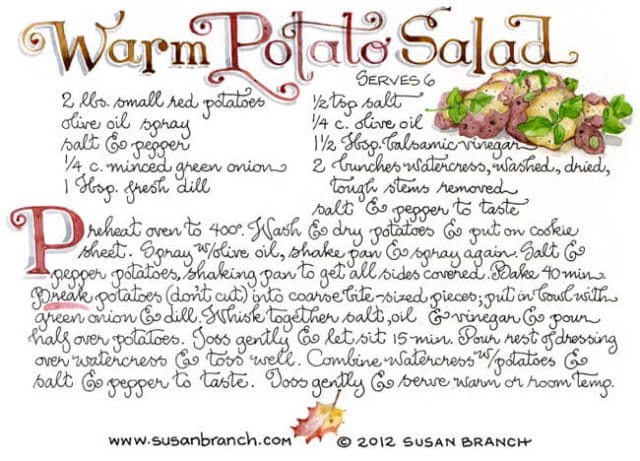 Warm Potato Salad
SERVES 6
2 lbs. small red potatoes
olive oil spray
salt & pepper
1/4 c. minced green onion
1 Tbsp. fresh dill
1/2 tsp salt
1/4 c. olive oil
1 1/2 Tbsp. balsamic vinegar
2 bunches watercress, washed, dried,
tough stems removed
salt & pepper to taste
Preheat oven to 400°. Wash & dry potatoes & put on cookie
sheet. Spray w/olive oil, shake pan & spray again. Salt &
pepper potatoes, shaking pan to get all sides covered. Bake 40 min.
Break potatoes (don't cut) into coarse bite-sized pieces; put in bowl with
green onion & dill. Whisk together salt, oil & vinegar & pour
half over potatoes. Toss gently & let sit 15 min. Pour rest of dressing
over watercress & toss well. Combine watercress w/potatoes &
salt & pepper to taste. Toss gently & serve warm or room temp.
www.susanbranch.com © 2012 SUSAN BRANCH